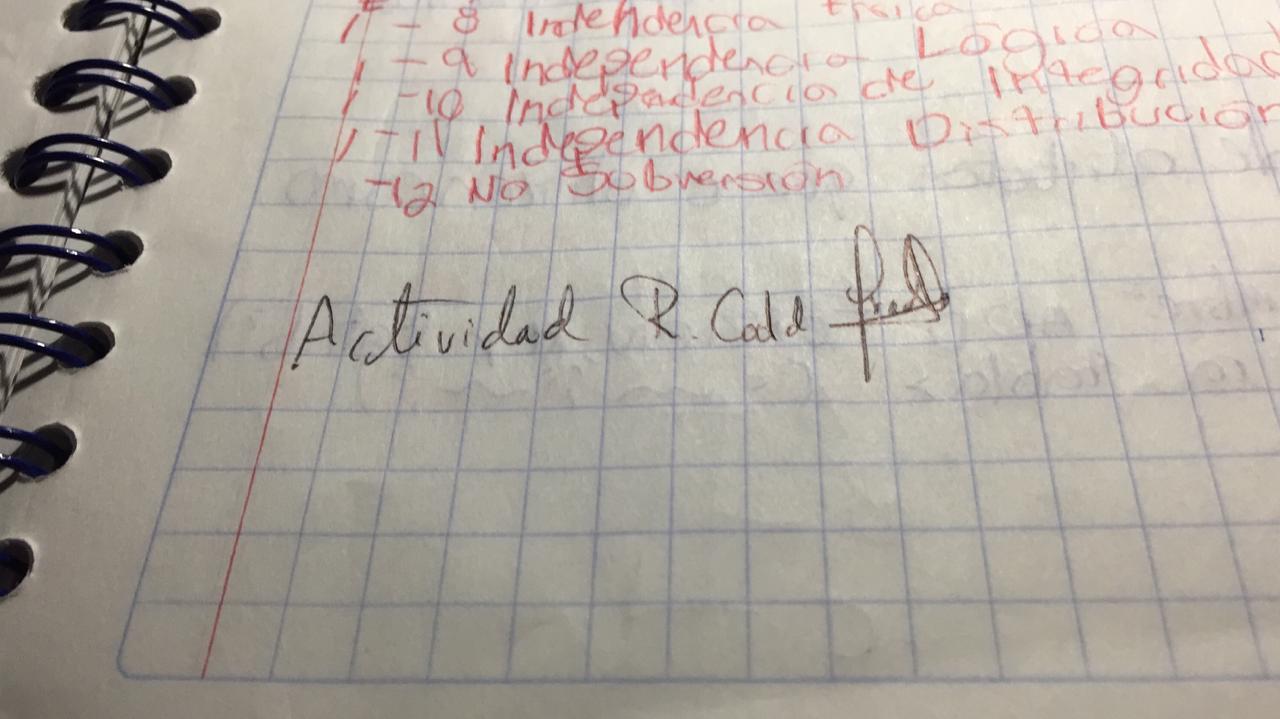 - 8 Indendencia física
- 9 Independencia Lógida
- 10 Independencia de Integridad
- 11 Independencia Distribución
- 12 No Subversión
Actividad R. Codd